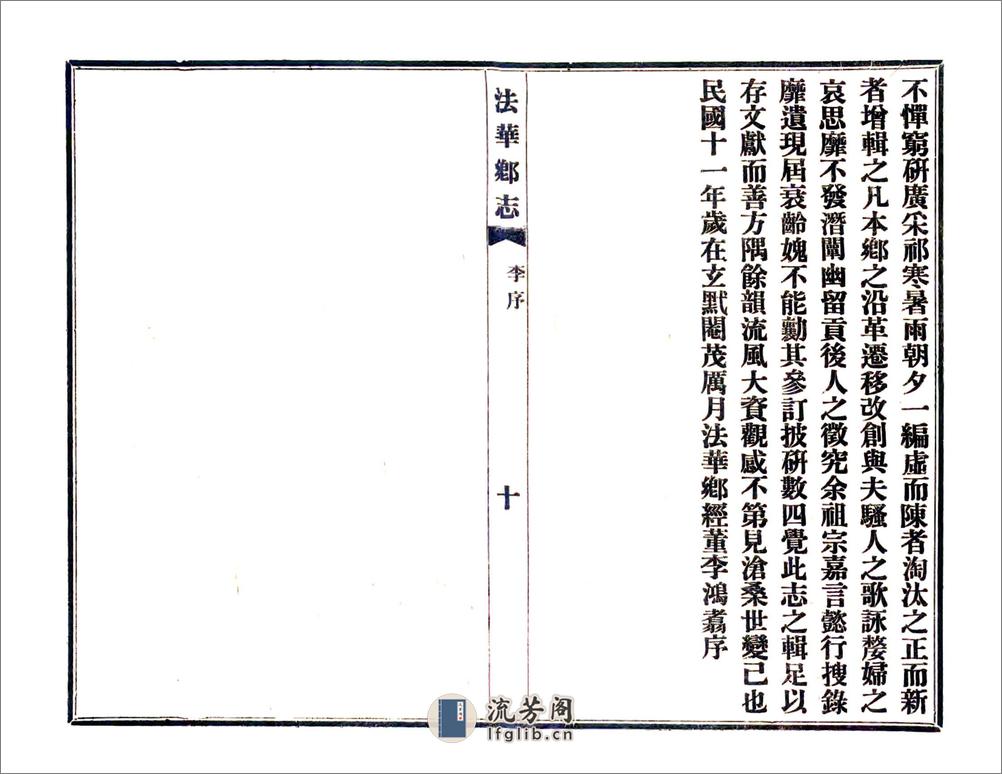 不憚窮硏廣采祁寒暑雨朝夕一編虛而陳者淘汰之正而新
者增輯之凡本鄕之沿革遷移改創與夫騷人之歌詠嫠婦之
哀思靡不發潛闡幽留貢後人之徵究余祖宗嘉言懿行搜錄
靡遺現屆衰齡媿不能勷其參訂披硏數四覺此志之輯足以
存文獻而善方隅餘韻流風大資觀感不第見滄桑世變已也
民國十一年歲在玄黓閹茂厲月法華鄕經董李鴻翥序
法華鄕志
李序
十
流芳阁
lfglib.cn